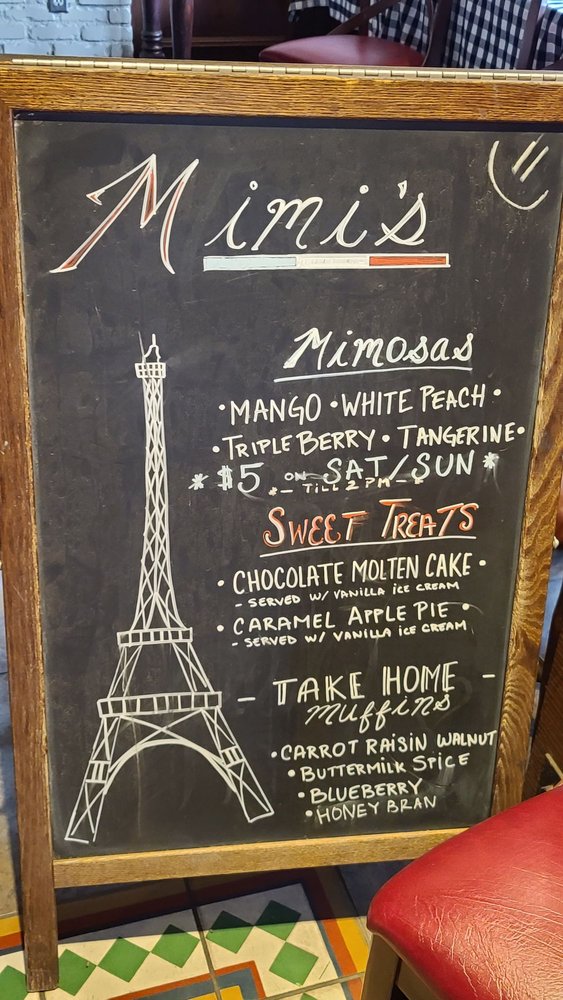 Mimi's
Mimosas
• MANGO • WHITE PEACH •
• TRIPLE BERRY • TANGERINE •
* $5 ON SAT/SUN *
*— TILL 2 PM —*
SWEET TREATS
• CHOCOLATE MOLTEN CAKE •
- SERVED W/ VANILLA ICE CREAM
• CARAMEL APPLE PIE •
- SERVED W/ VANILLA ICE CREAM
- TAKE HOME -
muffins
• CARROT RAISIN WALNUT
• BUTTERMILK SPICE
• BLUEBERRY
• HONEY BRAN